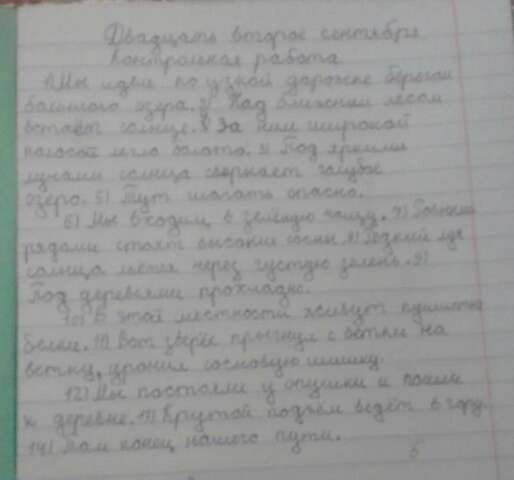 Двадцать второе сентября
Контрольная работа
1) Мы идём по узкой дорожке берегом
большого озера. 2) Над ближним лесом
встаёт солнце. 3) За ним широкой
полосой легло болото. 4) Под яркими
лучами солнца сверкает голубое
озеро. 5) Тут шагать опасно.
6) Мы входим в зелёную чащу. 7) Ровными
рядами стоят высокие сосны. 8) Редкий луч
солнца льётся через густую зелень. 9)
Под деревьями прохладно.
10) В этой местности живут пушистые
белки. 11) Вот зверёк прыгнул с ветки на
ветку, уронил сосновую шишку.
12) Мы постояли у опушки и пошли
к деревне. 13) Крутой подъём ведёт в гору.
14) Там конец нашего пути.
5